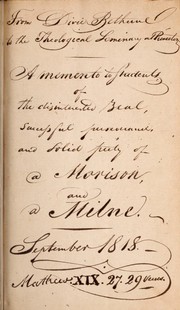 From Divie Bethune
to the Theological Seminary at Princeton
A memento to Students
of
the disinterested Zeal,
successful perseverance,
and solid piety of
a Morison,
and
a Milne.
September 1818.
Matthew XIX. 27. 29 Verses.